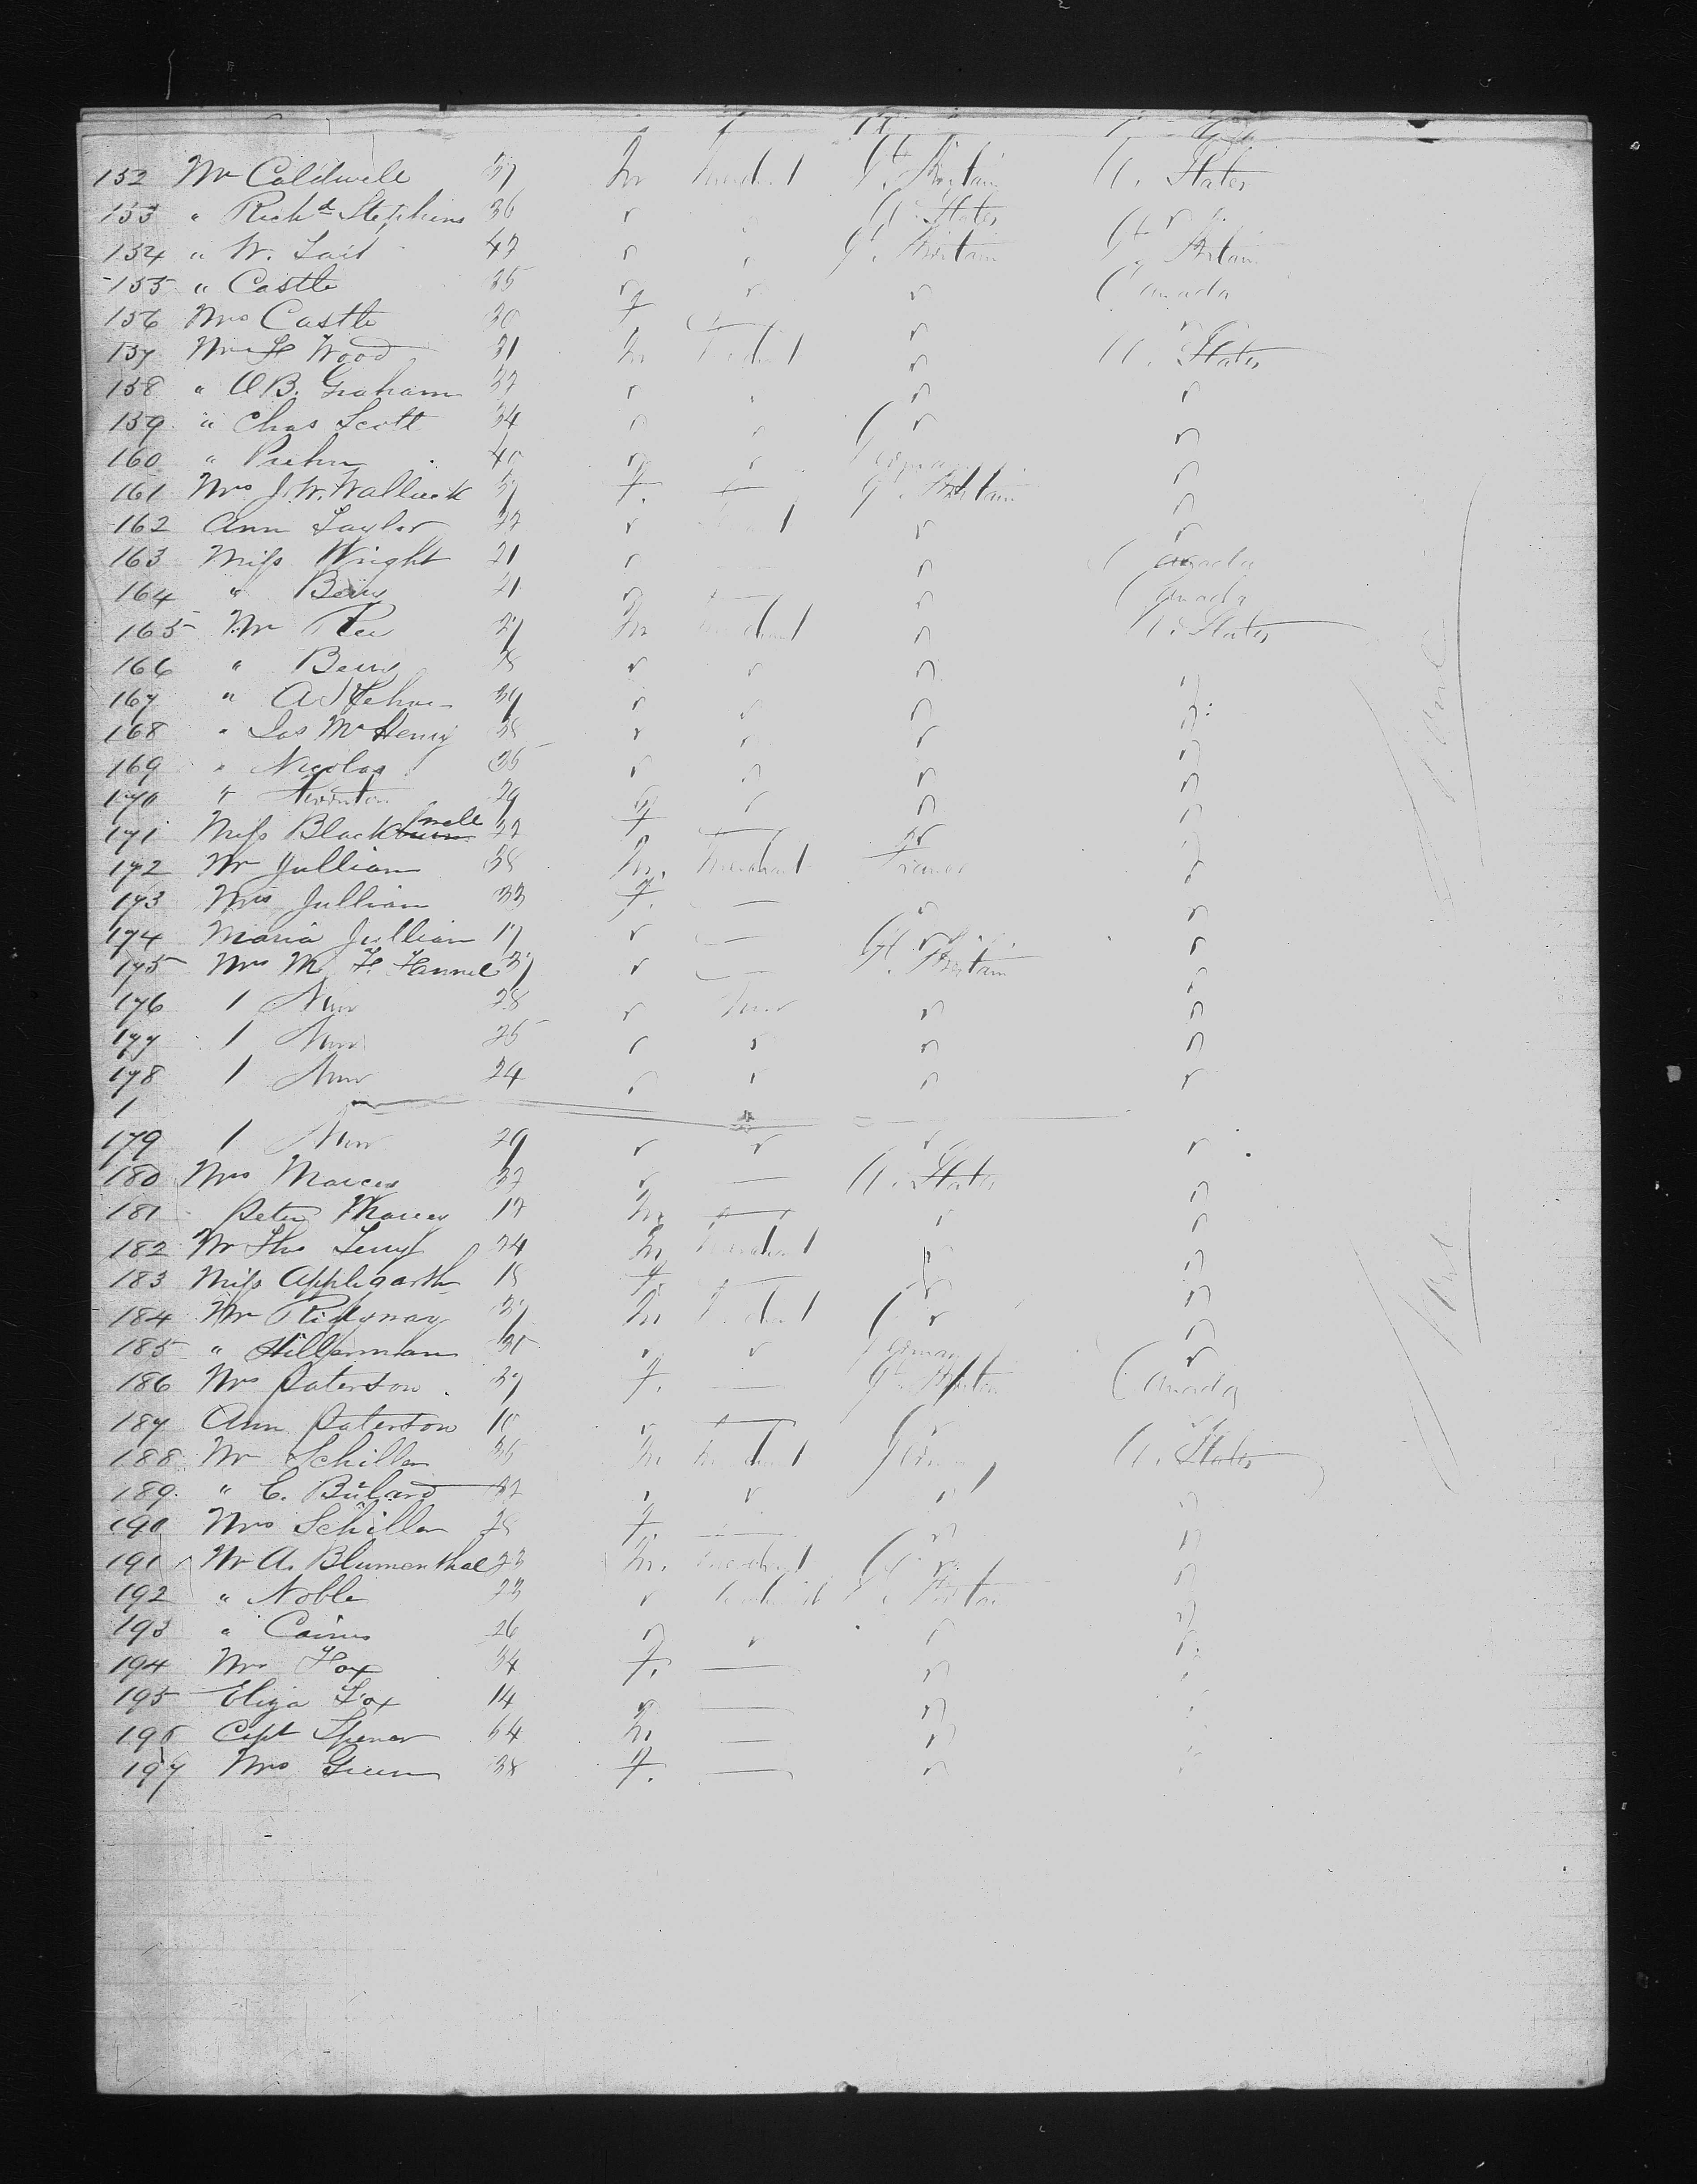 152 Mr Caldwell 37 M Merchant Gt. Britain U. States
153 " Richd Stephens 36 " " U. States "
154 " W. Tait 47 " " Gt. Britain Gt. Britain
155 " Castle 35 " " " Canada
156 Mrs Castle 30 f — " "
157 Mr H Wood 31 M Merchant " U. States
158 " A B. Graham 37 " " " "
159 " Chas Scott 34 " " " "
160 " 40 " " Germany "
161 Mrs J. W. Wallack 37 f. — Gt. Britain "
162 Ann Taylor 27 " " "
163 Miss Wright 21 " — " Canada
164 " Berry 21 " — " Canada
165 Mr Ree 27 M Merchant " U. States
166 " Berry " " " "
167 " 39 " " " "
168 " Jas McHenry 38 " " " "
169 " Nicolas 35 " " " "
170 " Thornton 29 " " " "
171 Miss Black 27 f — " "
172 Mr Jullian 38 M. Merchant France "
173 Mrs Jullian 33 f. — " "
174 Maria Jullian 17 " — " "
175 Mrs M. F. 37 " — Gt. Britain "
176 1 Nun 28 " Nun " "
177 1 Nun 25 " " " "
178 1 Nun 24 " " " "
1
179 1 Nun 29 " " " "
180 Mrs Marcey 37 " — U. States "
181 Peter Marcey 17 M — " "
182 Mr Tho Terry 24 M Merchant " "
183 Miss Applegarth 18 f. — " "
184 Mr Ridgway 37 M Merchant " "
185 " Hillerman 30 " " Germany "
186 Mrs Paterson 37 f. — Gt. Britain Canada
187 Ann Paterson 10 " — " "
188 Mr Schiller 35 M Merchant Germany U. States
189 " C. Bülard 37 " " " "
190 Mrs Schiller 28 f. — " "
191 Mr A. Blumenthal 23 M. Merchant " "
192 " Noble 23 " Gt. Britain "
193 " Cairns 26 " " " "
194 Mrs Fox 34 f. — " "
195 Eliza Fox 14 " — " "
196 Capt Spencer 64 M — " "
197 Mrs Green 38 f. — " "